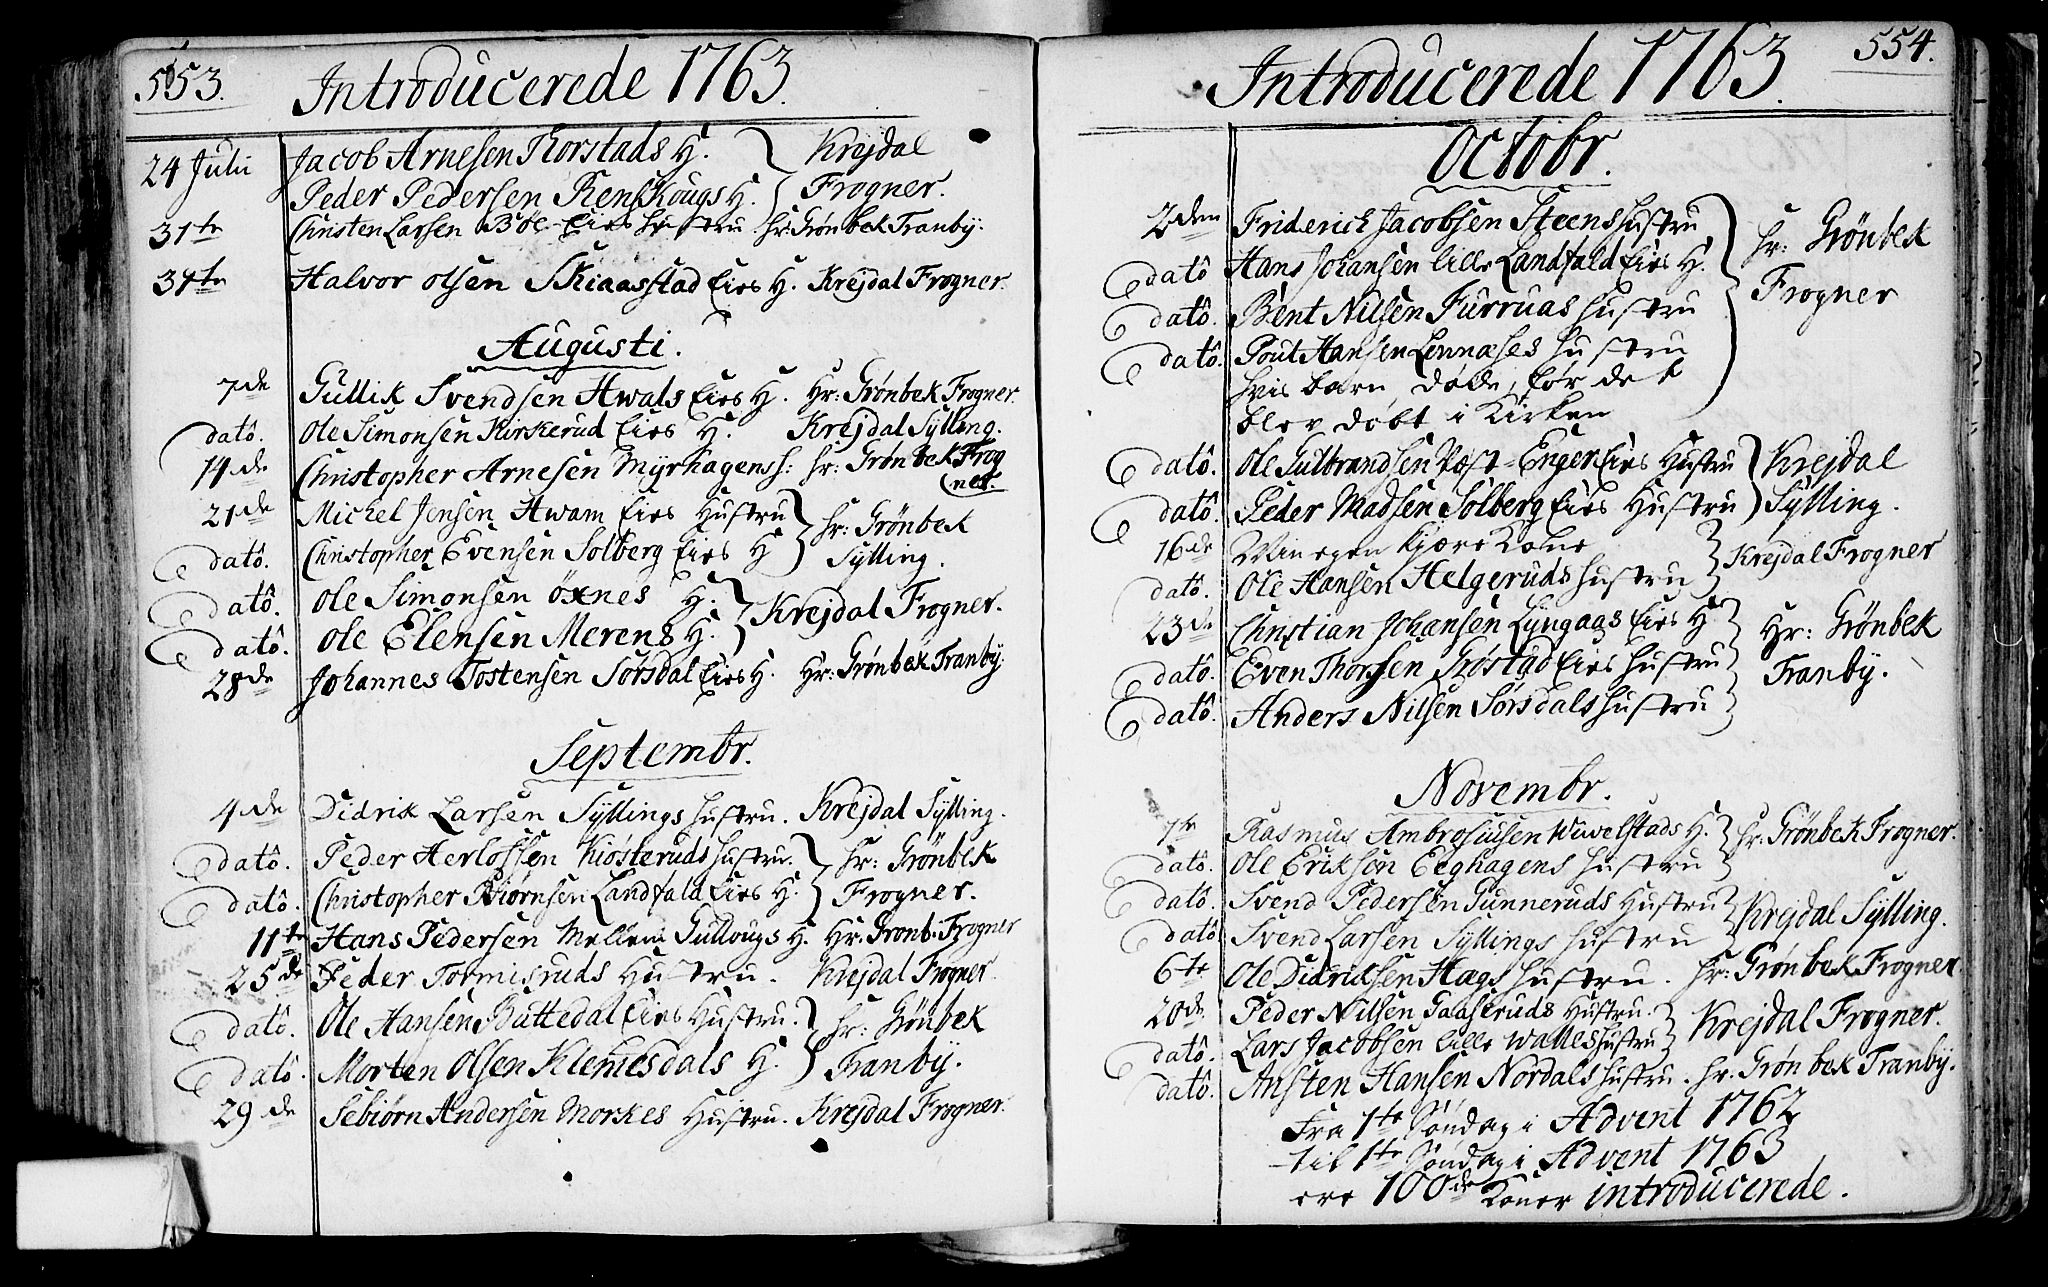 553.
Introducerede 1763.
24 Juli Jacob Arnesen Thorstads H. Krejdal
Peder Pedersen Renskougs H. Frogner.
31te Christen Larsen Böl-Eies hustru hr: Grönbek Tranby.
31te Halvor Olsen Skiaasstad Eies H. Krejdal Frogner.
Augusti.
7de Gullik Svendsen Hwals Eies H. Hr: Grönbek Frogner.
datô. Ole Simonsen Kirkerud Eies H. Krejdal Sylling.
14de Christopher Arnesen Myrhagens h: hr: Grönbek Frog
ner.
21de Michel Jensen Hwam Eies Hustru hr: Grönbek
datô. Christopher Evensen Solberg Eies H Sylling.
datô. Ole Simonsen Öxnes H. Krejdal Frogner.
datô. Ole Elensen Merens H.
28de Johannes Tostensen Sörsdal Eies H. Hr: Grönbek Tranby.
Septembr.
4de Didrik Larsen Syllings hustru. Krejdal Sylling.
datô. Peder Herlofsen Kiösteruds hustru. hr: Grönbek
datô. Christopher Biörnsen Landfald Eies H. Frogner.
11te Hans Pedersen Mellem Gullougs H. Hr: Gronb: Frogner
25de Peder Tormisruds Hustru. Krejdal Frogner
datô. Ole Hansen Buttedal Eies Hustru. hr: Grönbek
datô. Morten Olsen Klemesdals H. Tranby.
29de Sebiörn Andersen Morkes Hustru. Krejdal Frogner.
554.
Introducerede 1763.
Octobr.
2den Friderich Jacobsen Steens hustru hr: Grönbek
datô Hans Johansen lille Landfald Eies H. Frogner
datô. Bent Nilsen Furruas hustru
datô. Poul Hansen Linnæses hustru
hvis barn döde, för det
blev döbt i Kirken
datô. Ole Gulbrandsen Væst-Enger Eies Hustru Krejdal
datô. Peder Madsen Solberg Eies Hustru Sylling.
16de Min egen kjære Kone Krejdal Frogner
datô. Ole Hansen Helgeruds hustru
23de Christian Johansen Lyngaas Eies H Hr: Grönbek
datô. Even Thorsen Gröstad Eies hustru Tranby.
datô. Anders Nilsen Sörsdals hustru
Novembr.
1te Rasmus Ambrosiusen Wivelstads H. hr: Grönbek Frogner.
datô. Ole Eriksen Eeghagens hustru
datô. Svend Pedersen Gunneruds Hustru Krejdal Sylling.
datô Svend Larsen Syllings hustru
6te Ole Didriksen Hags hustru. hr: Grönbek Frogner.
20de Peder Nilsen Gaaseruds Hustru. Krejdal Frogner.
datô. Lars Jacobsen lille Walles hustru
datô. Ansten Hansen Nordals hustru. hr: Grönbek Tranby.
Fra 1te Söndag i Advent 1762
til 1te Söndag i Advent 1763
ere 100de Koner introducerede.